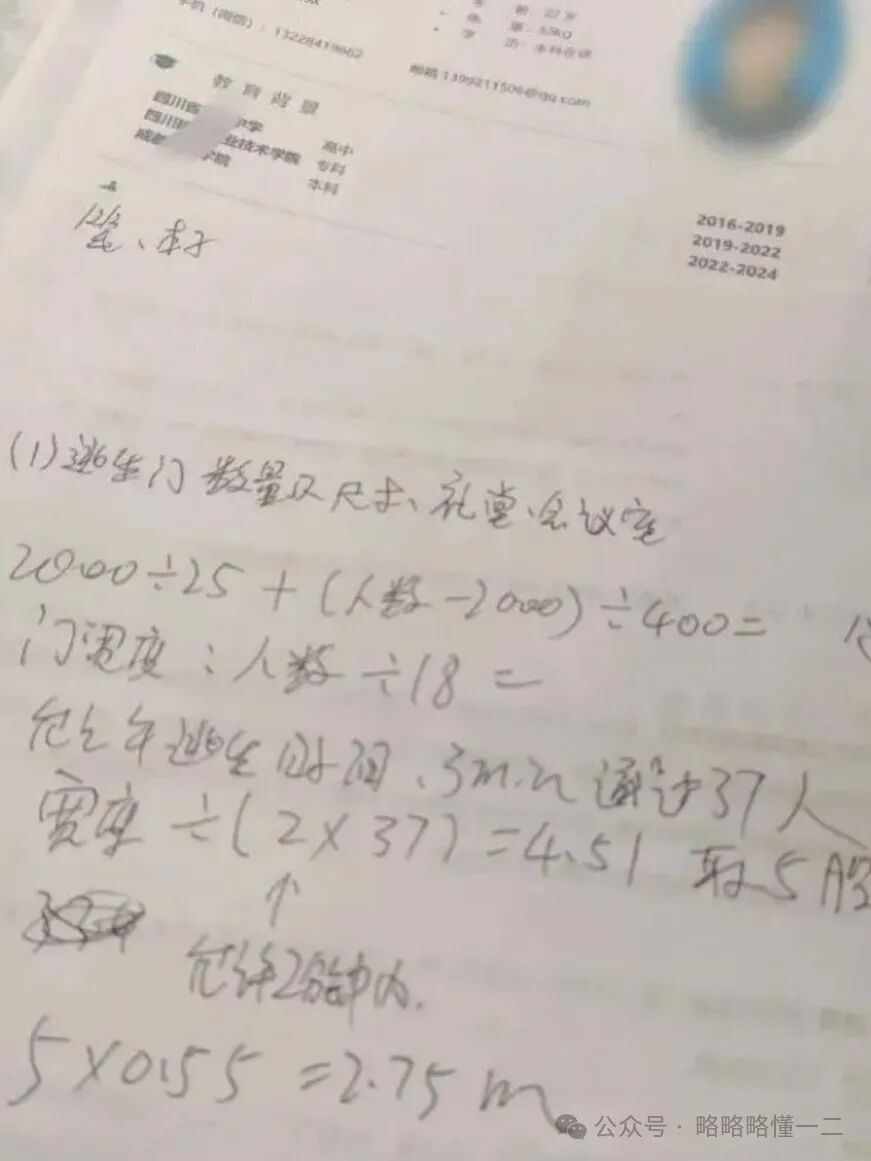 手机（微信）：13228419662
龄：22岁
体 重：55kg
学 历：本科在读
邮箱 1399211506@qq.com
教育背景
四川省 中学 高中
四川 业技术学院 专科
成都 学院 本科
2016-2019
2019-2022
2022-2024
笔、本子
(1)逃生门数量及尺寸、礼堂、会议室
2000÷25+(人数-2000)÷400=
门宽度：人数÷18=
允许逃生时间、3min 通过37人
宽度÷(2×37)=4.51 取5股
↑
允许2分钟内.
5×0.55=2.75m
公众号·略略略懂一二